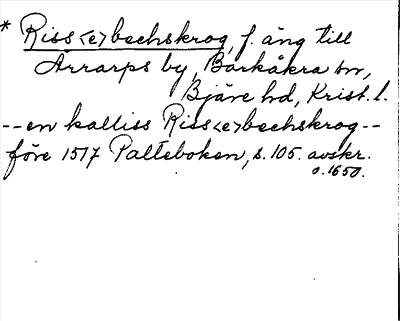 * Riss<e>bechskrog, f. äng till
Arrarps by, Barkåkra sn,
Bjäre hd, Krist. l.
--en kalliss Riss<e>bechskrog--
före 1517 Palteboken, s. 105. avskr.
o. 1650.